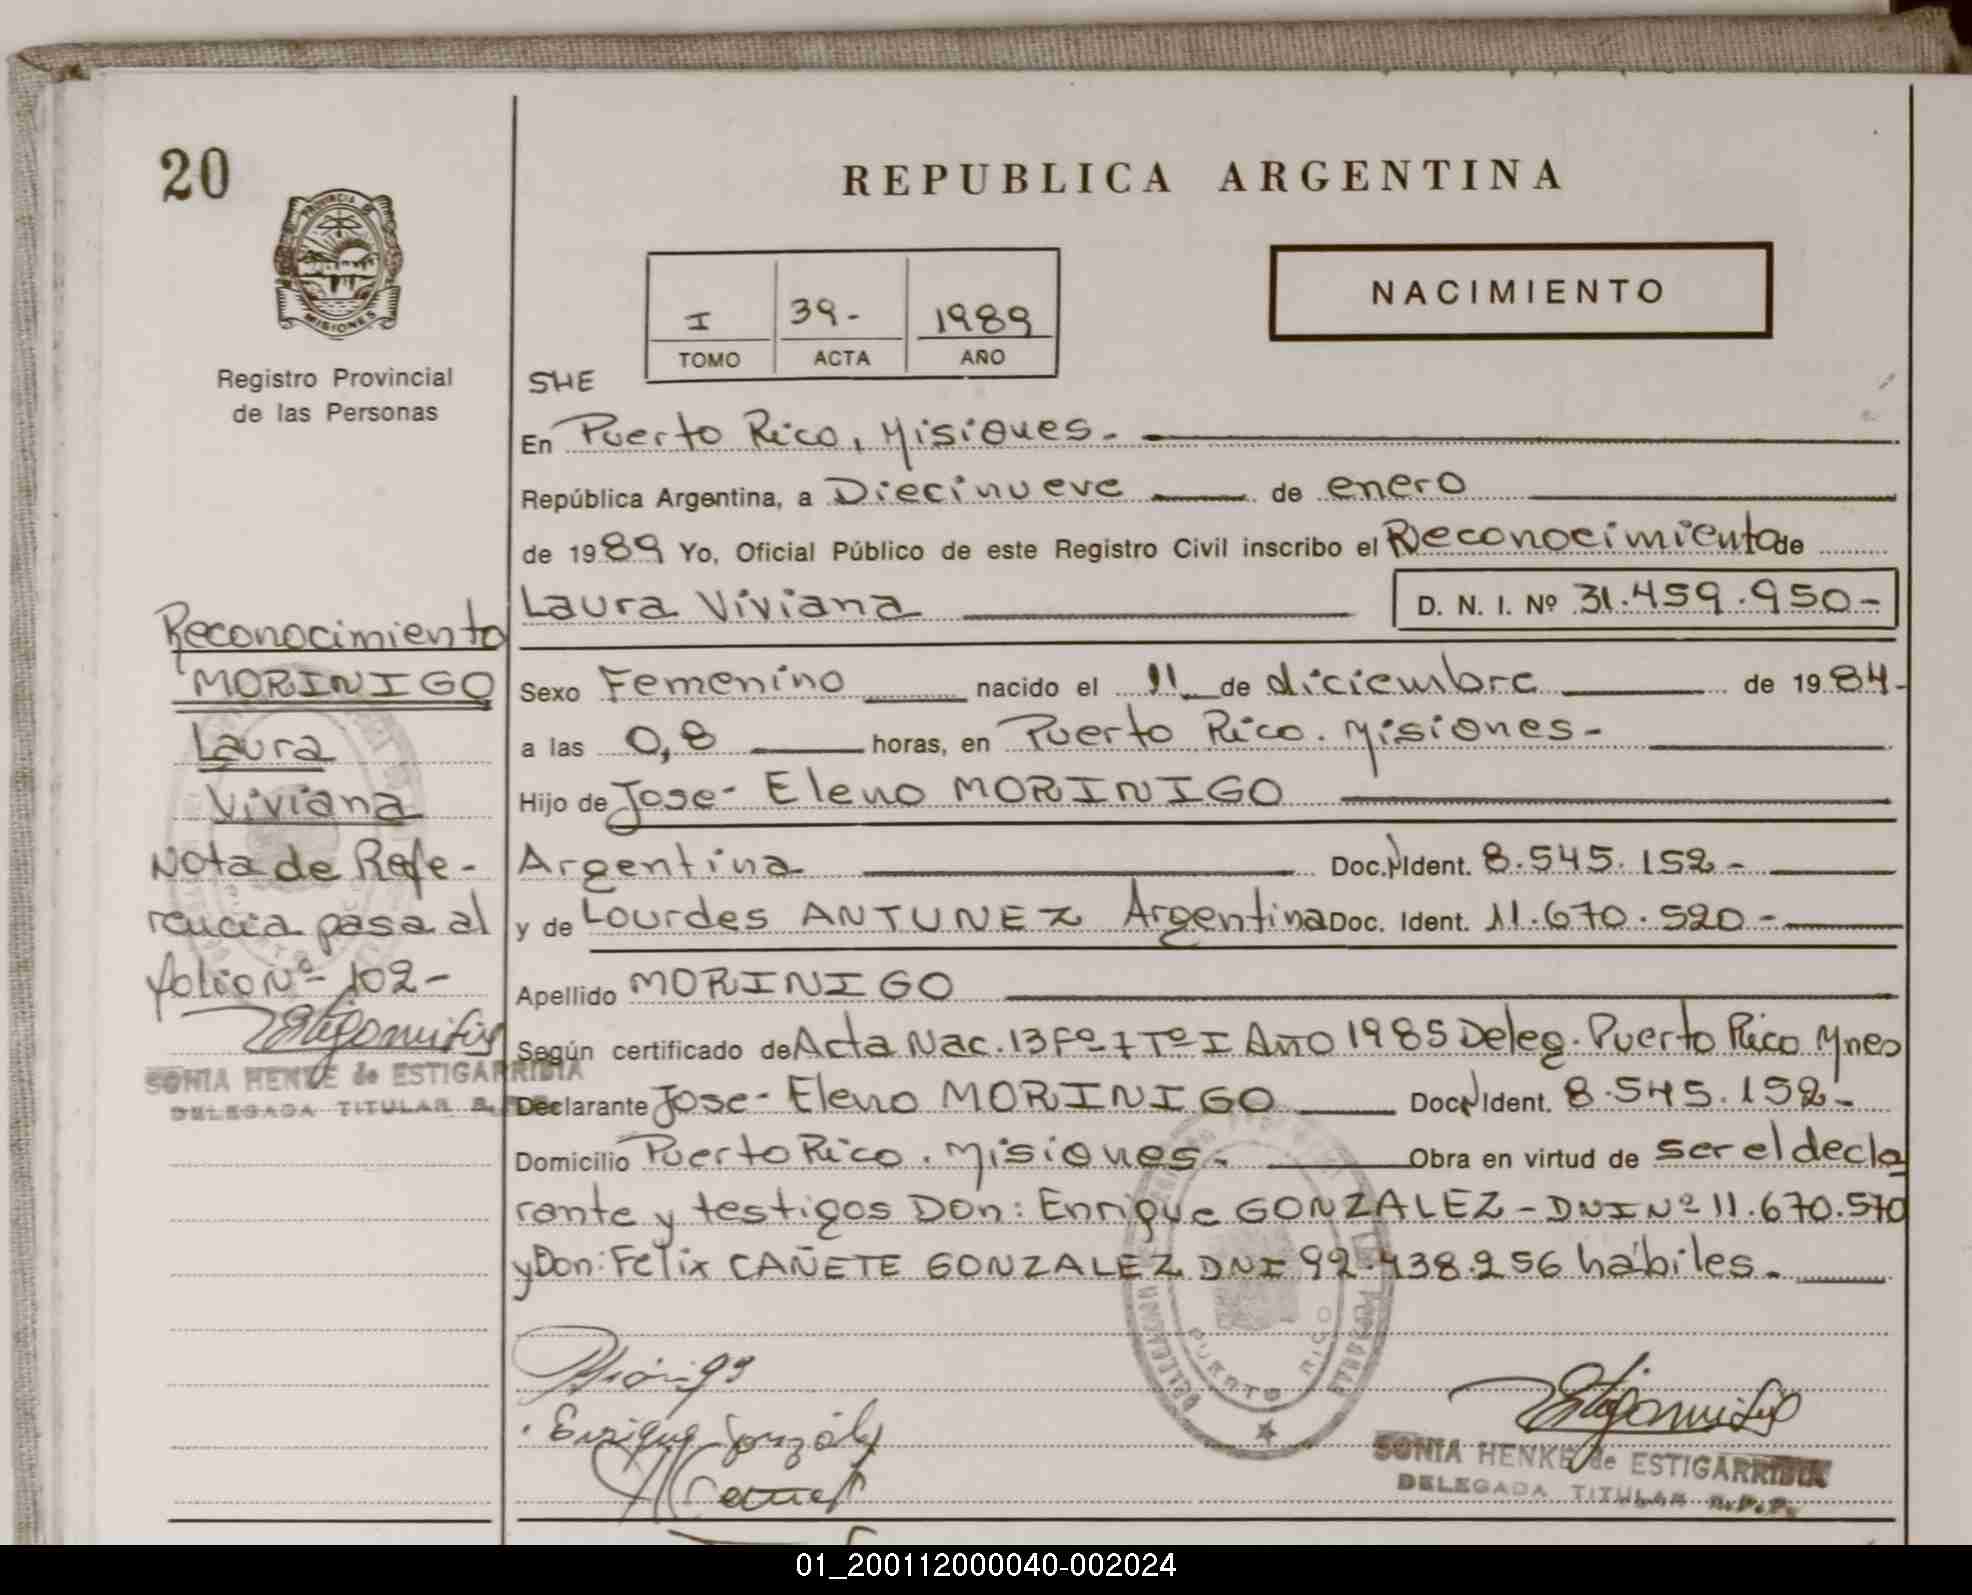 20
PROVINCIA DE
MISIONES
Registro Provincial
de las Personas
REPUBLICA ARGENTINA
I 39- 1989
TOMO ACTA AÑO
NACIMIENTO
SHE
En Puerto Rico, Misiones.-
República Argentina, a Diecinueve de enero
de 1989 Yo, Oficial Público de este Registro Civil inscribo el Reconocimiento de
Laura Viviana D. N. I. Nº 31.459.950-
Sexo Femenino nacido el 11 de diciembre de 1984-
a las 0,8 horas, en Puerto Rico. Misiones-
Hijo de Jose- Eleno MORINIGO
Argentina Doc. N Ident. 8.545.152-
y de Lourdes ANTUNEZ Argentina Doc. Ident. 11.670.520-
Apellido MORINIGO
Según certificado de Acta Nac. 13 Fº 7 Tº I Año 1985 Deleg. Puerto Rico Mnes
Declarante Jose- Eleno MORINIGO Doc. N Ident. 8.545.152-
Domicilio Puerto Rico. Misiones- Obra en virtud de ser el decla
rante y testigos Don: Enrique GONZALEZ - DNI Nº 11.670.570
y Don: Felix CAÑETE GONZALEZ DNI 92.438.256 hábiles.
Enrique Gonzáles
PUERTO RICO
SONIA HENKE de ESTIGARRIBIA
DELEGADA TITULAR R.P.P.
Reconocimiento
MORINIGO
Laura
Viviana
Nota de Refe-
rencia pasa al
folio Nº 102-
SONIA HENKE de ESTIGARRIBIA
DELEGADA TITULAR
01_200112000040-002024